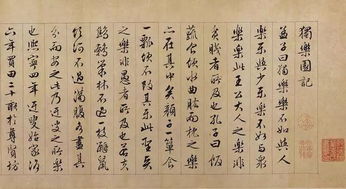 獨樂園記
孟子曰獨樂樂不如與人
樂樂與少樂樂不如與衆
樂樂此王公大人之樂非
貧賤者所及也孔子曰飯
蔬食飲水曲肱而枕之樂
亦在其中矣顏子一簞食
一瓢飲不改其樂此聖賢
之樂非愚者所及也若夫
鷦鷯巢林不過一枝鼴鼠
飲河不過滿腹各盡其
分而安之此乃迂叟之所樂
也熙寧四年迂叟始家洛
六年買田二十畝於尊賢坊